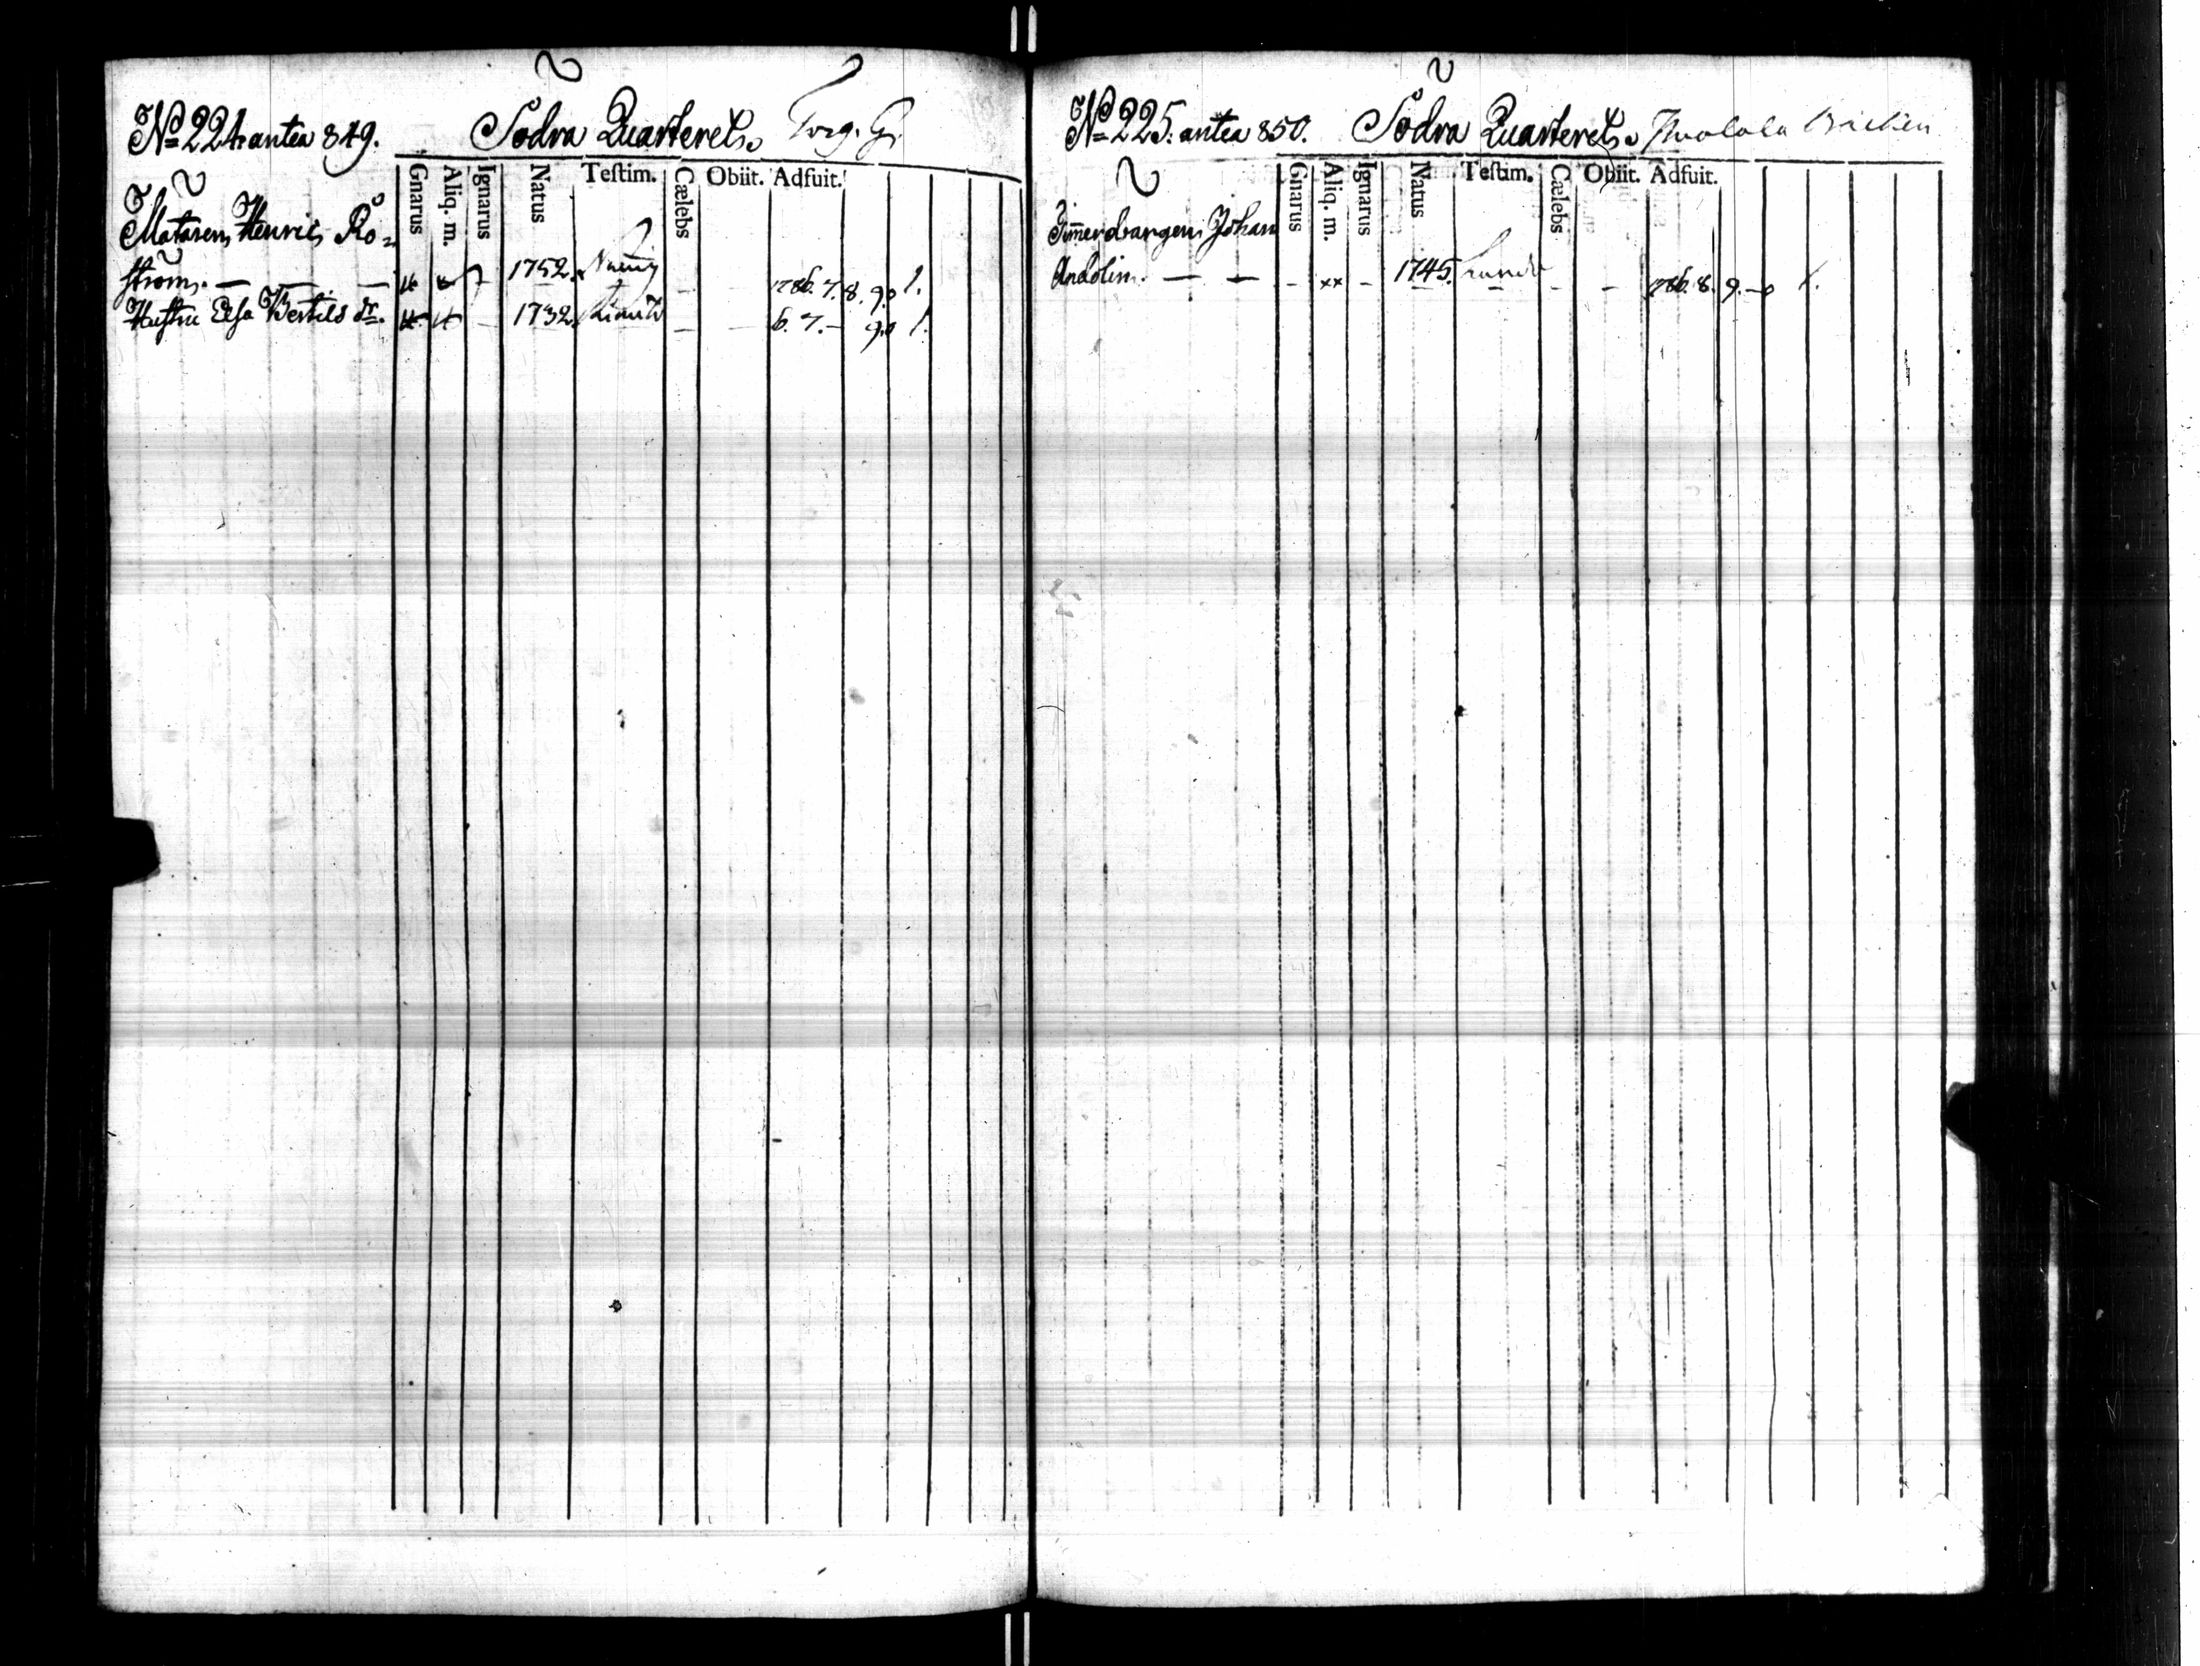 No 224 antea 849. Södra Quarteret. Torg. G.
Gnarus Aliq. m. Ignarus Natus Testim. Cælebs Obiit. Adfuit.
Matrosen Henric Rö=
ström. — — — 1752. 1786. 7. 8. 9. 1.
Hustru Elsa Bertils dr. 1732. Kimito — — 6. 7. — 9. 1.
No 225. antea 850. Södra Quarteret.
Gnarus Aliq. m. Ignarus Natus Testim. Cælebs Obiit. Adfuit.
Timerdrangen Johan
Andolin. — — – xx – 1745. – – 1786. 8. 9. — 1.